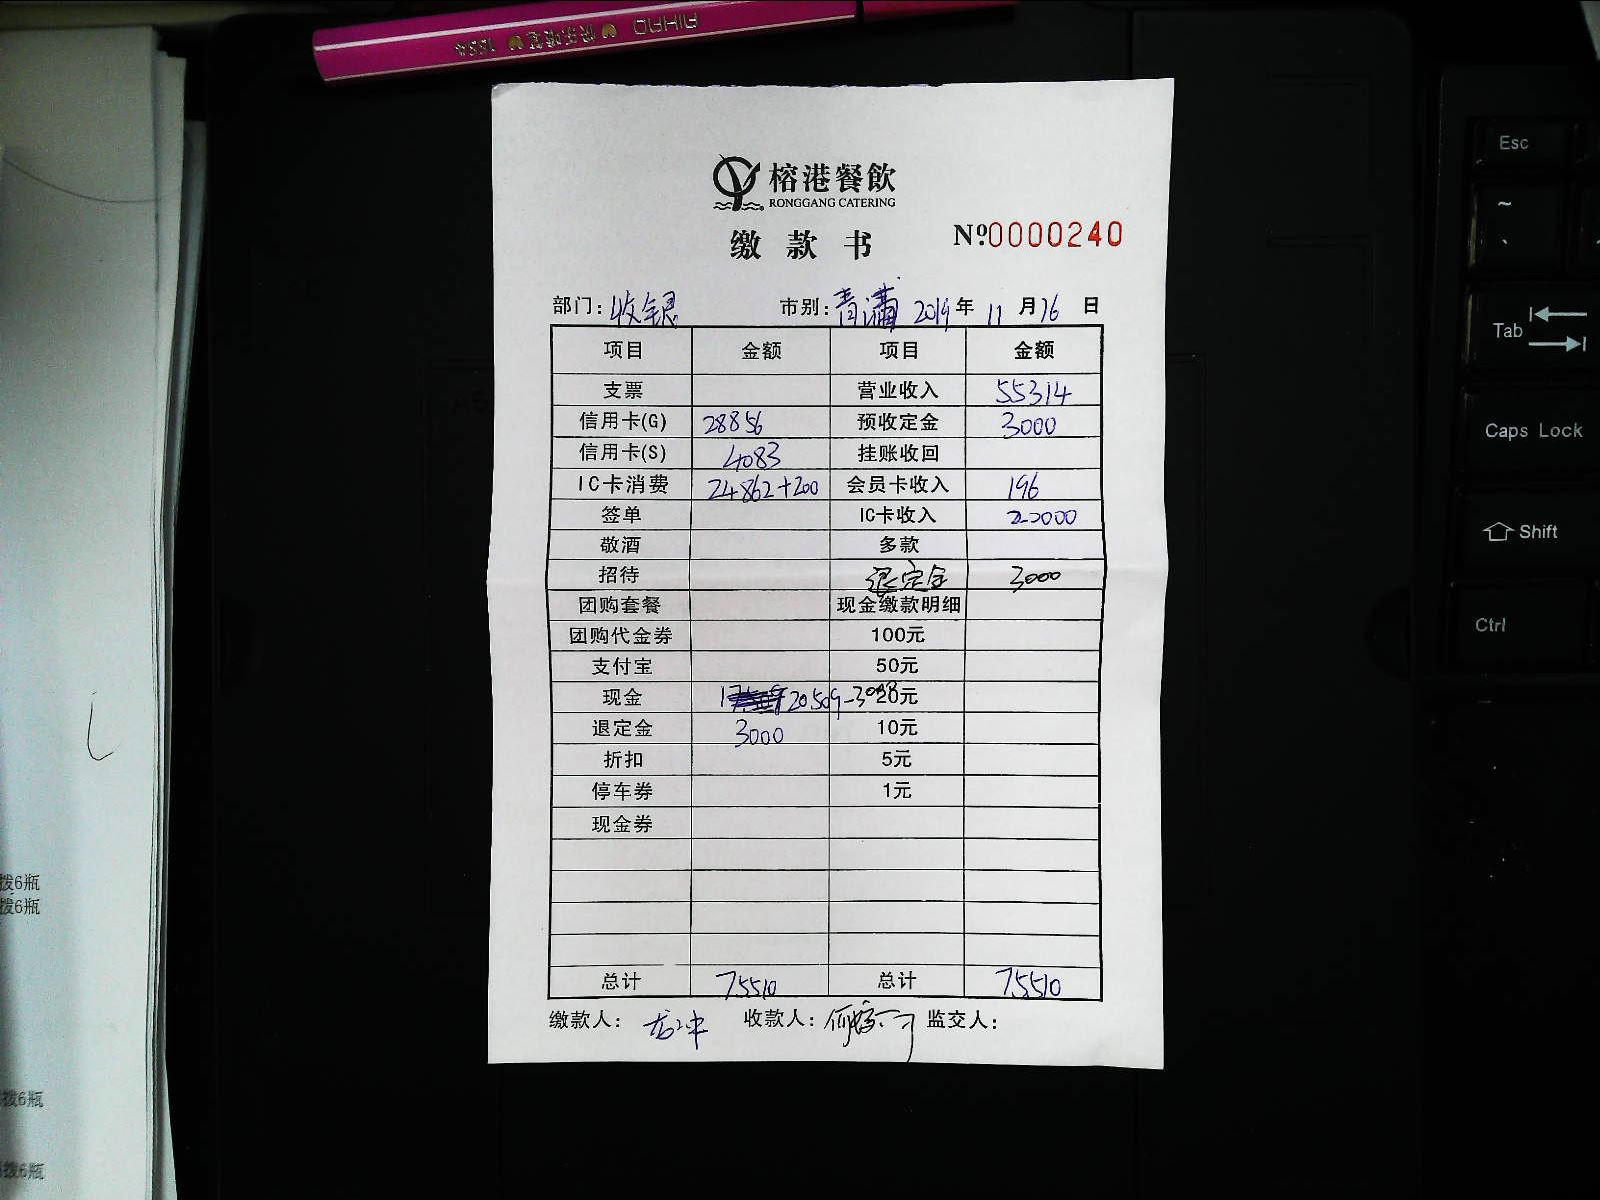 AIHAO 快乐嘻嘻 1884
榕港餐飲
RONGGANG CATERING
缴款书 №0000240
部门: 收银 市别: 青潇 2019年 11月16日
项目 金额 项目 金额
支票 营业收入 55314
信用卡(G) 28856 预收定金 3000
信用卡(S) 4083 挂账收回
IC卡消费 24862+200 会员卡收入 196
签单 IC卡收入 20000
敬酒 多款
招待 退定金 3000
团购套餐 现金缴款明细
团购代金券 100元
支付宝 50元
现金 20509-3000 20元
退定金 3000 10元
折扣 5元
停车券 1元
现金券
总计 75510 总计 75510
缴款人: 收款人: 监交人:
拨6瓶
拨6瓶
拨6瓶
拨6瓶
Esc
~
Tab
Caps Lock
Shift
Ctrl